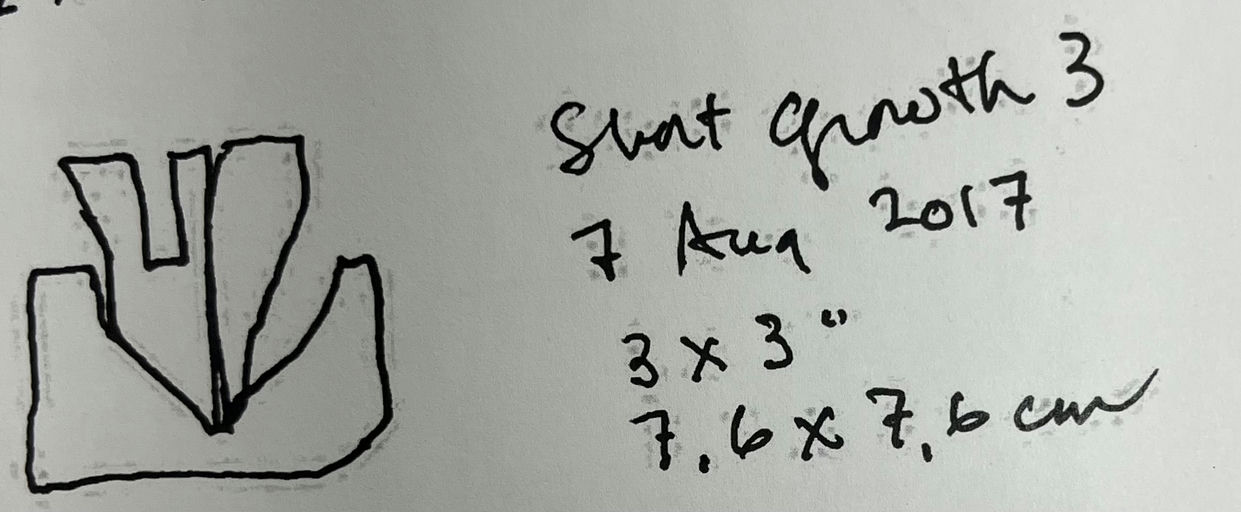 Growth 3
7 Aug 2017
3 x 3"
7.6 x 7.6 cm